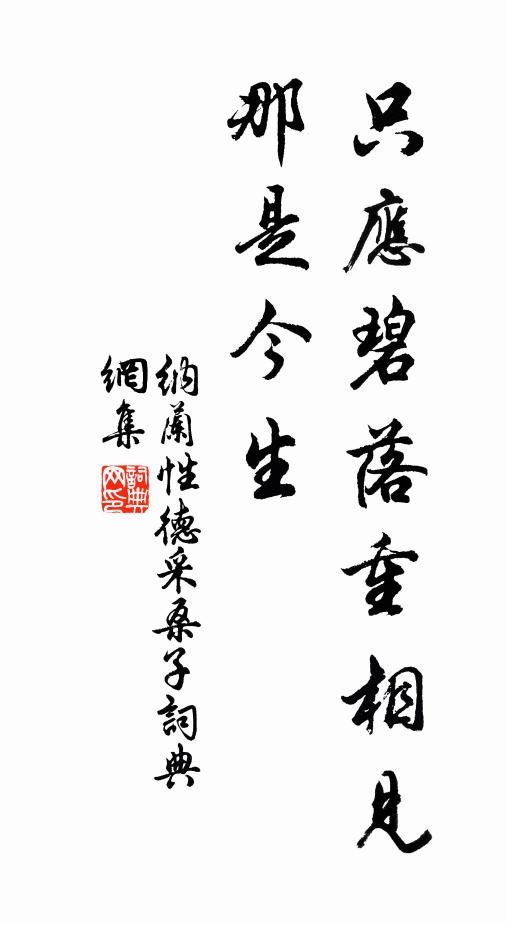 只應碧落重相見
那是今生
納蘭性德采桑子詞典
網集
詞典網印